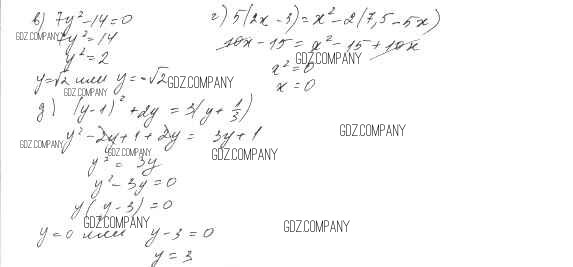 в) 7y² - 14 = 0
7y² = 14
y² = 2
y = √2 или y = -√2
г) 5(2x - 3) = x² - 2(7,5 - 5x)
10x - 15 = x² - 15 + 10x
x² = 0
x = 0
д) (y - 1)² + 2y = 3(y + 1/3)
y² - 2y + 1 + 2y = 3y + 1
y² = 3y
y² - 3y = 0
y(y - 3) = 0
y = 0 или y - 3 = 0
y = 3
GDZ.COMPANY
GDZ.COMPANY
GDZ.COMPANY
GDZ.COMPANY
GDZ.COMPANY
GDZ.COMPANY
GDZ.COMPANY
GDZ.COMPANY
GDZ.COMPANY
GDZ.COMPANY